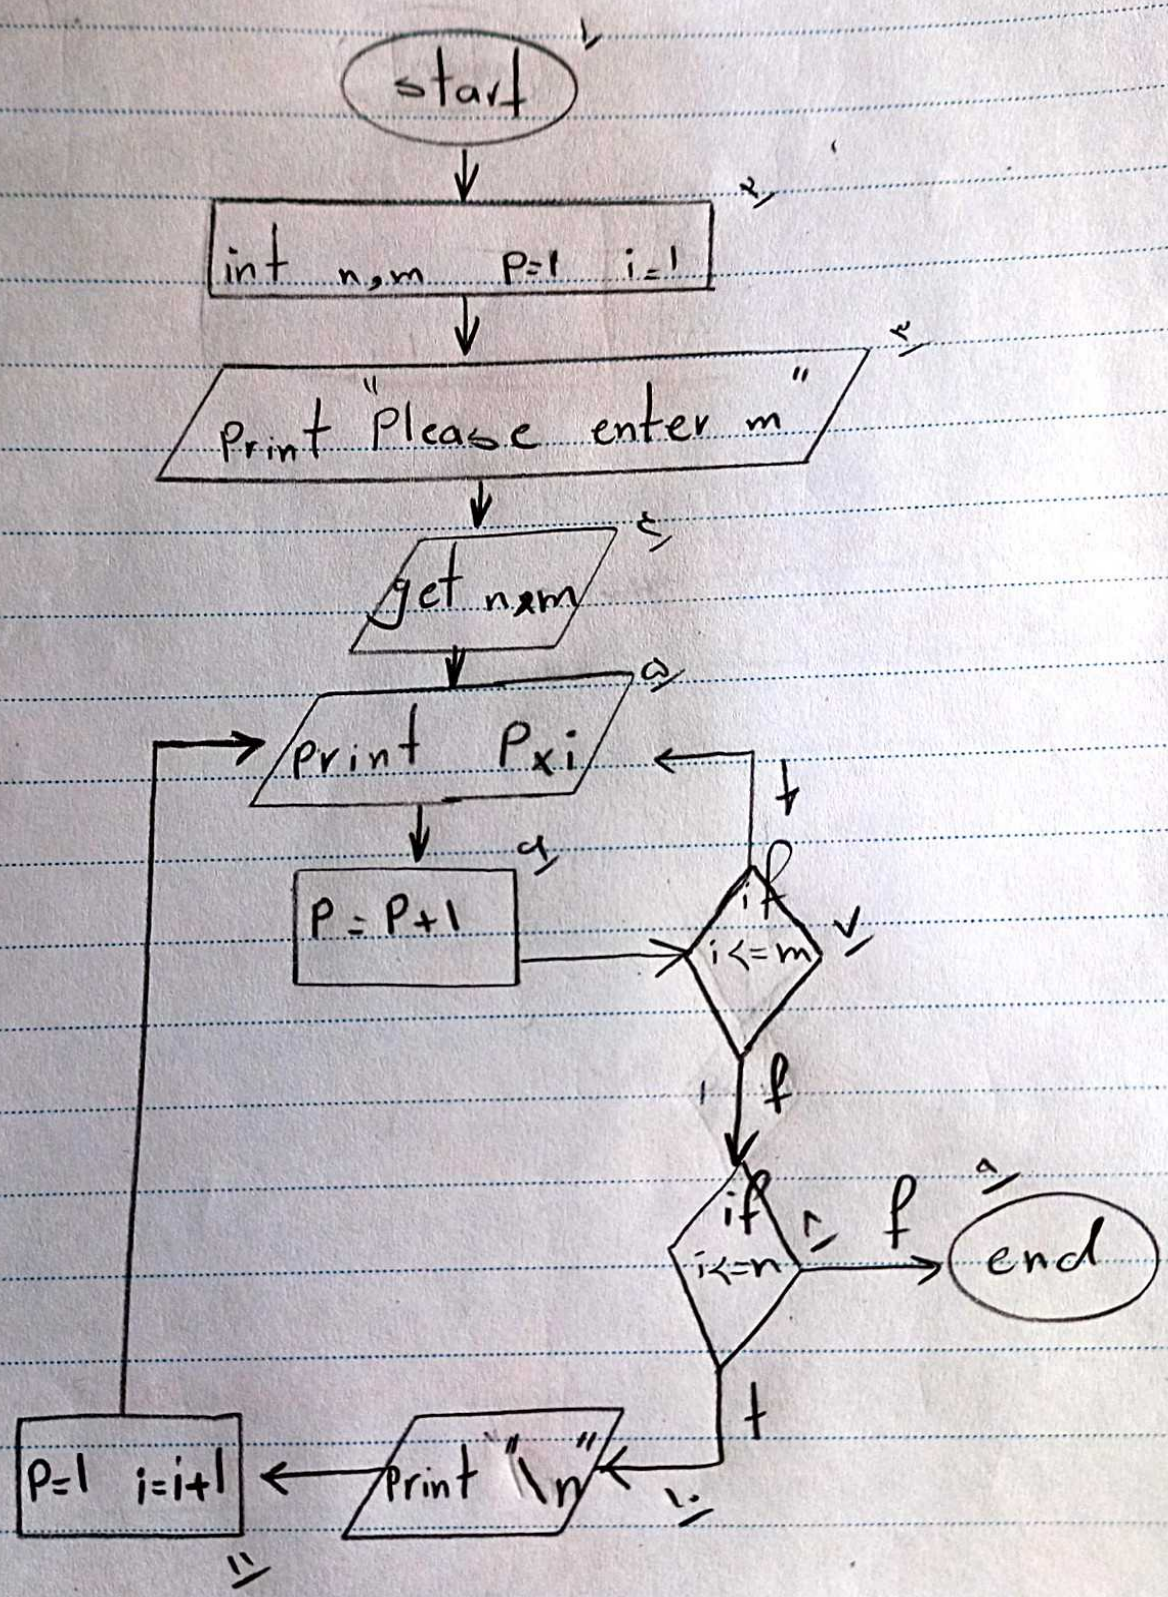 start ۱
int n,m P=1 i=1 ۲
Print "Please enter m" ۳
get n,m ٤
print P×i ۵
t
P=P+1 ۶
if
i<=m ۷
f
if
i<=n ۸
f
end ۹
t
print "\n" ۱۰
P=1 i=i+1 ۱۱